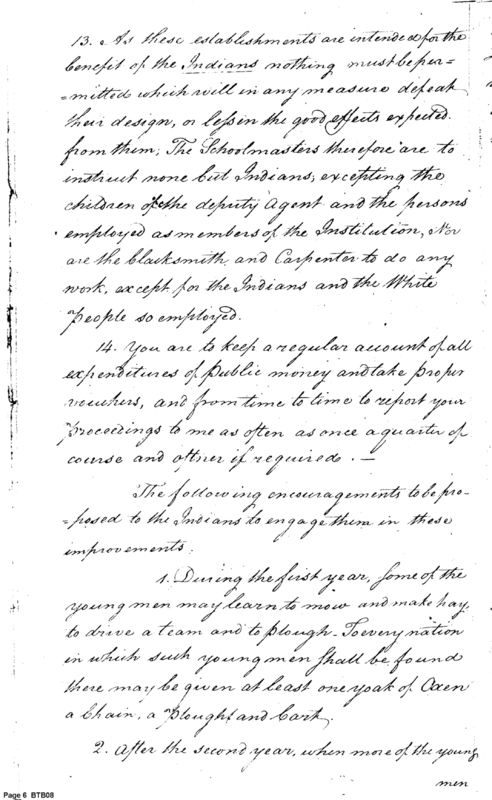 13. As these establishments are intended for the
benefit of the Indians nothing must be per=
=mitted which will in any measure defeat
their design, or lessen the good effects expected
from them; The Schoolmasters therefore are to
instruct none but Indians, excepting the
children of the deputy Agent and the persons
employed as members of the Institution, Nor
are the blacksmith and Carpenter to do any
work, except for the Indians and the White
People so employed.
14. You are to keep a regular account of all
expenditures of Public money and take Proper
vouchers, and from time to time to report your
Proceedings to me as often as once a quarter of
course and oftner if required. —
The following encouragements to be pro=
=posed to the Indians to engage them in these
improvements.
1. During the first year, some of the
young men may learn to mow and make hay,
to drive a team and to plough. To every nation
in which such young men shall be found
there may be given at least one yoak of Oxen
a Chain, a Plough and Cart.
2. After the second year, when more of the young
men
Page 6 BTB08